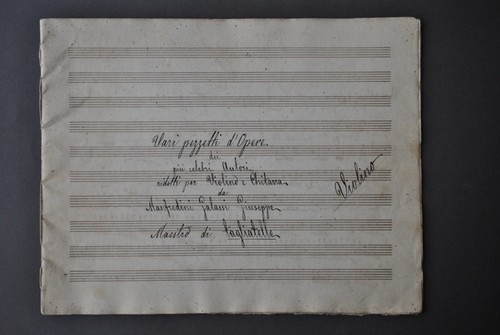 Vari pezzetti d'Opere
dei
più celebri Autori
ridotti per Violino e Chitarra
da
Manfredini Galassi Giuseppe
Maestro di tagliatelle
Violino